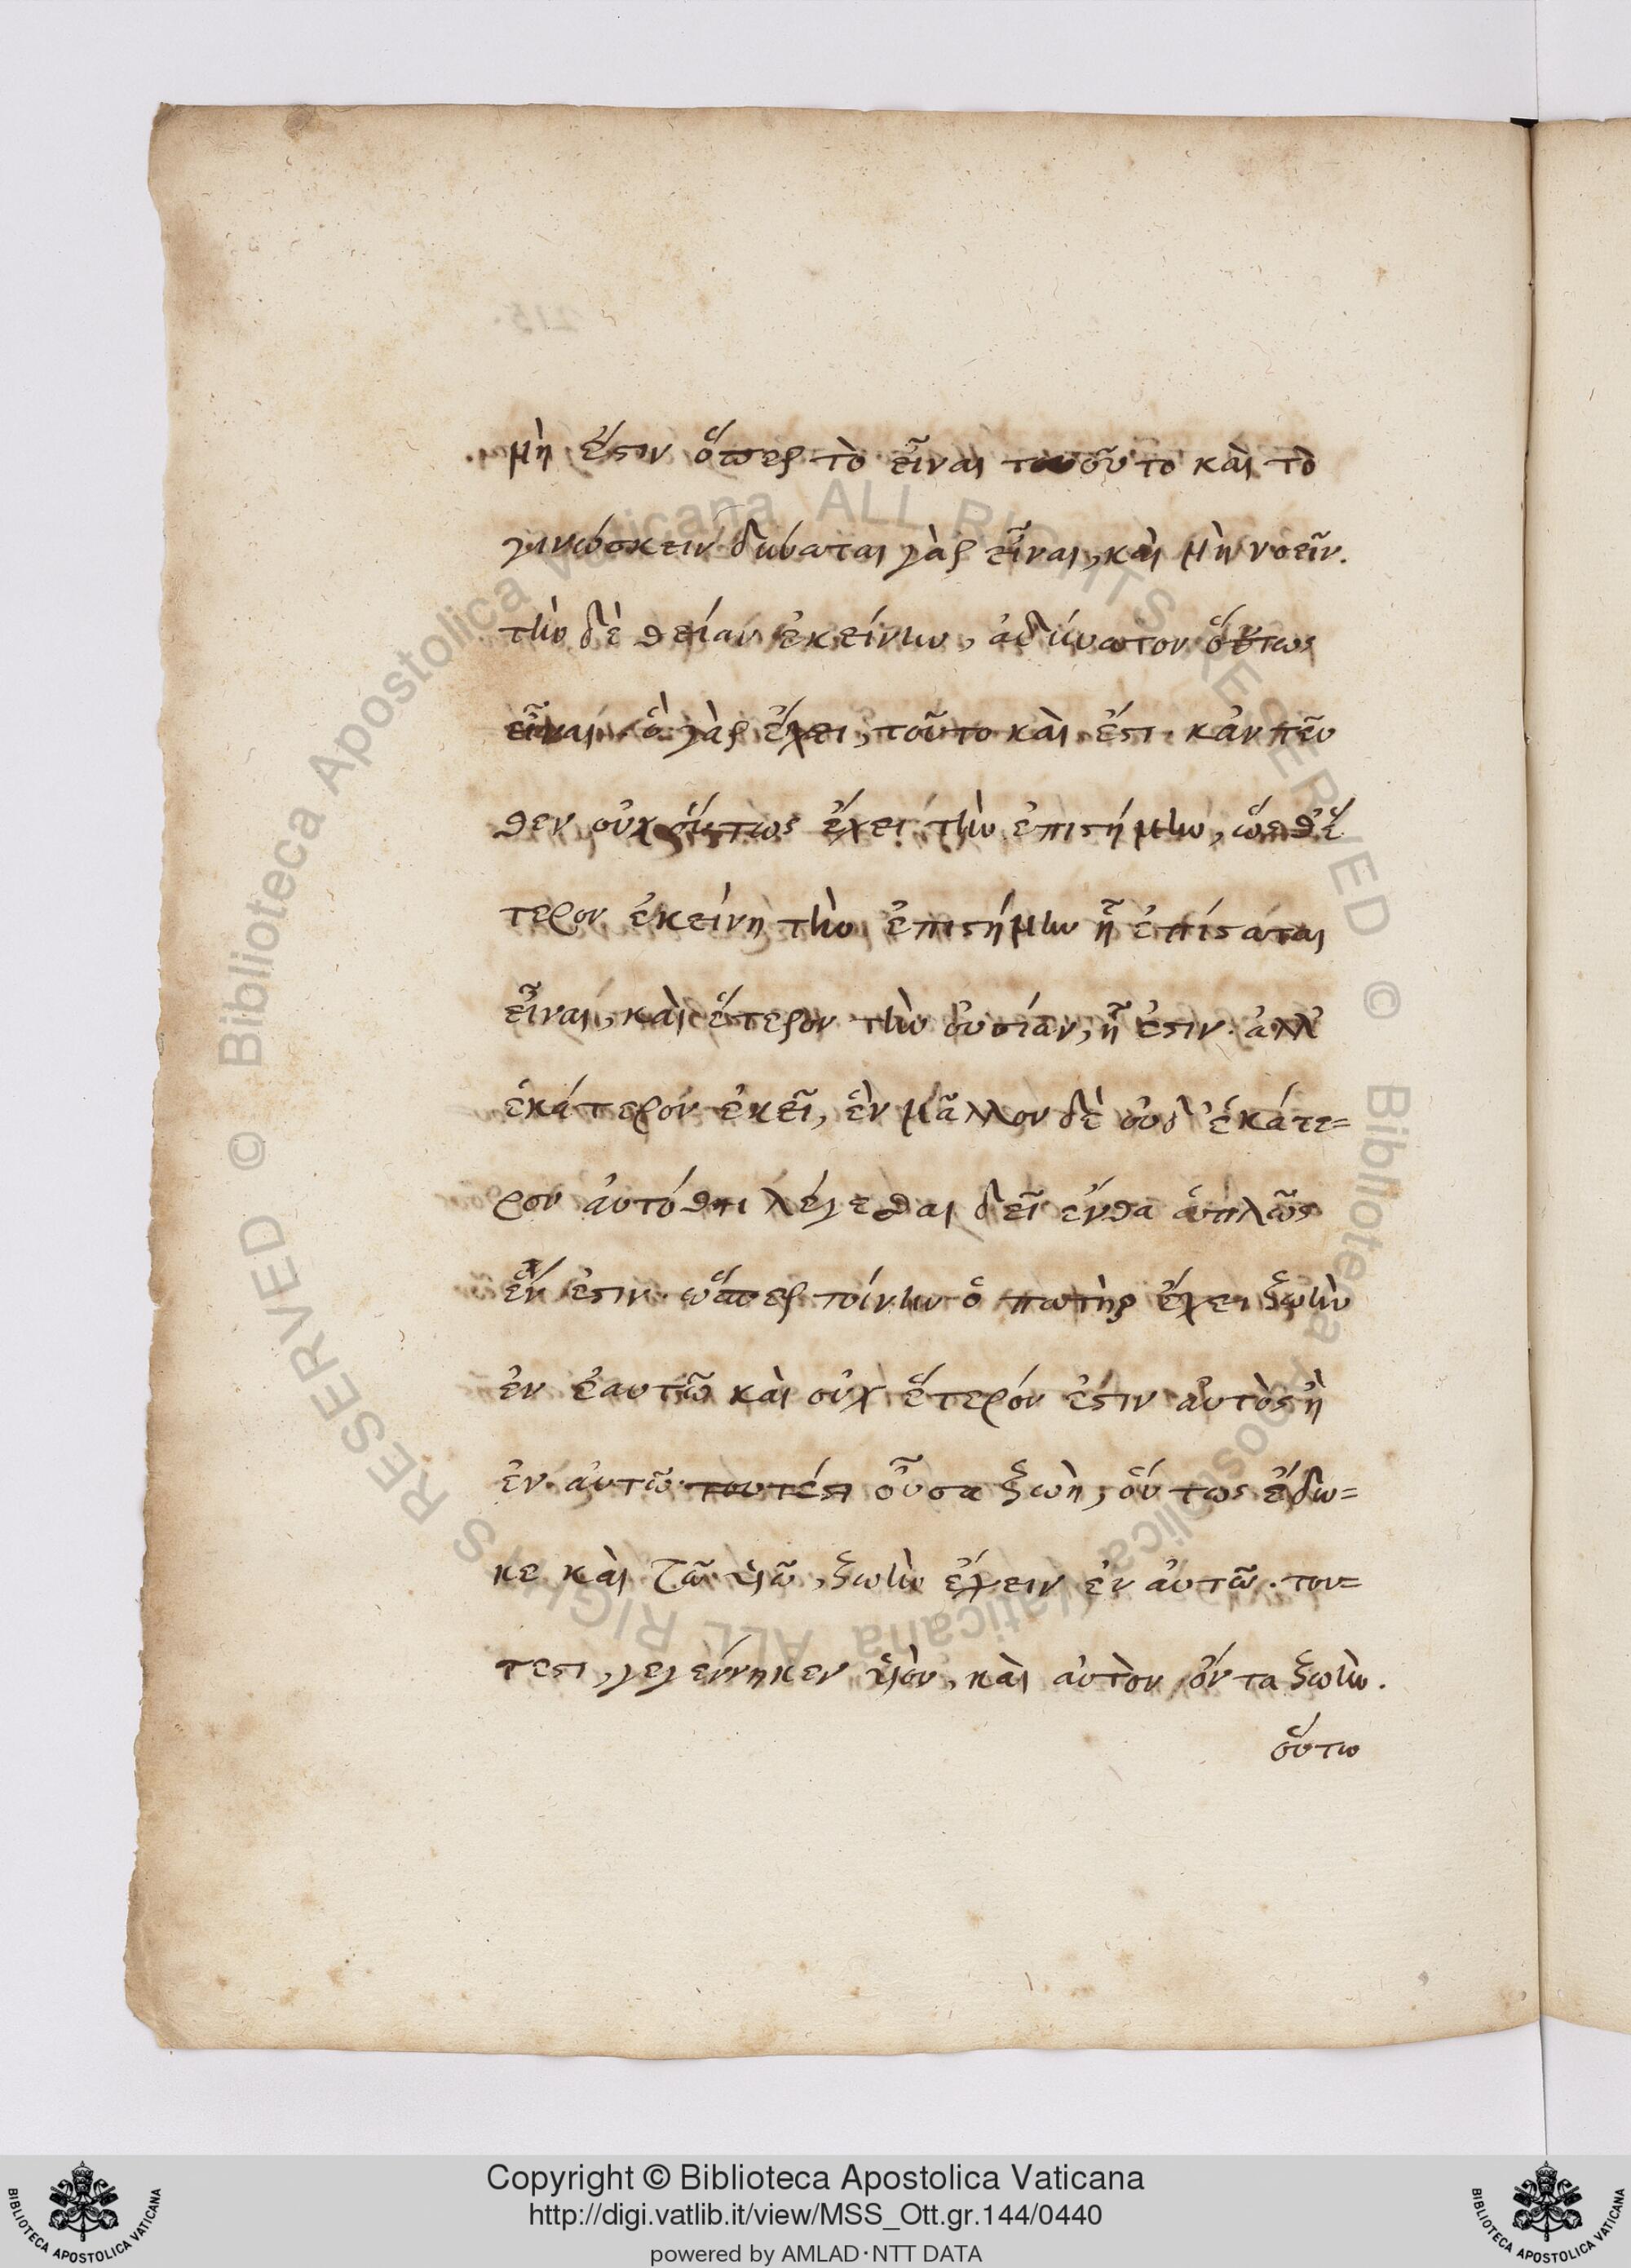 μὴ ἔστιν ὅπερ τὸ εἶναι τουοῦτο καὶ τὸ
γινώσκειν δύναται γὰρ εἶναι, καὶ μὴ νοεῖν.
τὴν δὲ θείαν ἐκείνην, ἀδύνατον οὕτως
εἶναι. ὃ γὰρ ἔχει, τοῦτο καὶ ἔστι. κἀντεῦ
θεν οὐχ οὕτως ἔχει τὴν ἐπιστήμην, ὥσθ' ἕ
τερον ἐκείνη τὴν ἐπιστήμην ᾗ ἐπίσταται
εἶναι, καὶ ἕτερον τὴν οὐσίαν, ᾗ ἐστιν. ἀλλ'
ἑκάτερον ἐκεῖ, ἓν μᾶλλον δὲ οὐδ' ἑκάτε=
ρον αὐτόθι λέγεσθαι δεῖ ἔνθα ἁπλῶς
ἕν ἐστιν. ὥσπερ τοίνυν ὁ πατὴρ ἔχει ζωὴν
ἐν ἑαυτῶ καὶ οὐχ ἕτερόν ἐστιν αὐτὸς ἢ
ἐν αὐτῶ τουτέστι οὖσα ζωὴ, οὕτως ἔδω=
κε καὶ τῶ υἱῶ, ζωὴν ἔχειν ἐν αὐτῶ. του=
τεστι, γεγέννηκεν υἱὸν, καὶ αὐτὸν ὄντα ζωὴν.
οὕτω
Copyright © Biblioteca Apostolica Vaticana
http://digi.vatlib.it/view/MSS_Ott.gr.144/0440
powered by AMLAD·NTT DATA